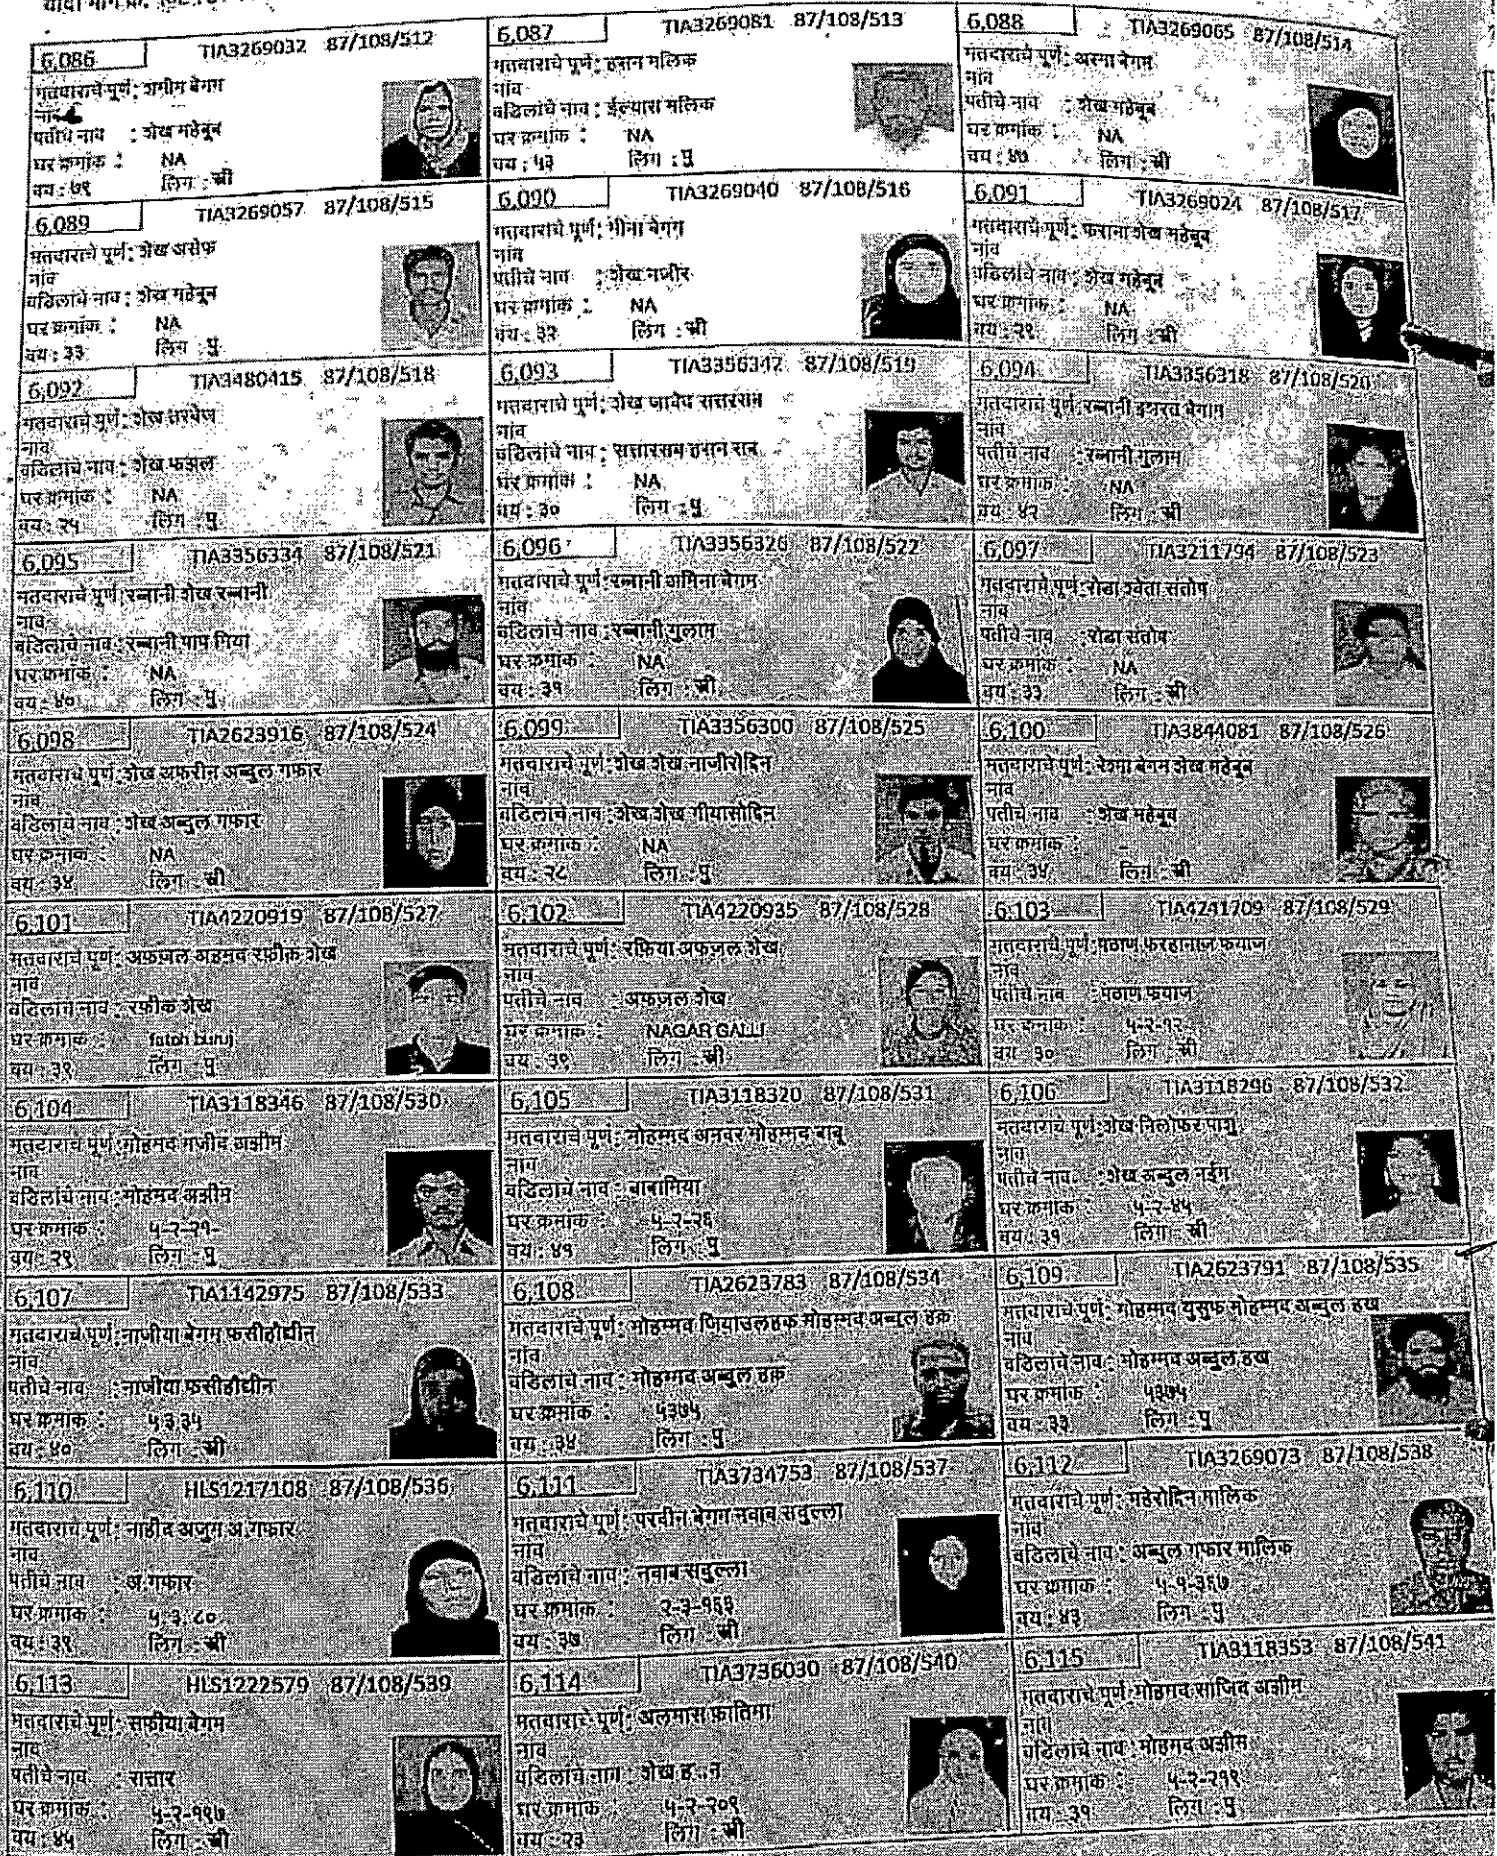 6,086 TIA3269032 87/108/512
मतदाराचे पूर्ण : शमीम बेगम
नांव
पतीचे नाव : शेख महेबूब
घर क्रमांक : NA
वय : ७९ लिंग : स्री
6,087 TIA3269081 87/108/513
मतदाराचे पूर्ण : हसन मलिक
नांव
वडिलांचे नाव : ईल्यास मलिक
घर क्रमांक : NA
वय : ५३ लिंग : पु
6,088 TIA3269065 87/108/514
मतदाराचे पूर्ण : अस्मा बेगम
नांव
पतीचे नाव : शेख महेबूब
घर क्रमांक : NA
वय : ४७ लिंग : स्री
6,089 TIA3269057 87/108/515
मतदाराचे पूर्ण : शेख असेफ
नांव
वडिलांचे नाव : शेख महेबूब
घर क्रमांक : NA
वय : ३३ लिंग : पु
6,090 TIA3269040 87/108/516
मतदाराचे पूर्ण : मीना बेगम
नांव
पतीचे नाव : शेख नजीर
घर क्रमांक : NA
वय : ३२ लिंग : स्री
6,091 TIA3269024 87/108/517
मतदाराचे पूर्ण : फराना शेख महेबूब
नांव
वडिलांचे नाव : शेख महेबूब
घर क्रमांक : NA
वय : २९ लिंग : स्री
6,092 TIA3480415 87/108/518
मतदाराचे पूर्ण : शेख
नांव
वडिलांचे नाव : शेख फझल
घर क्रमांक : NA
वय : २५ लिंग : पु
6,093 TIA3356342 87/108/519
मतदाराचे पूर्ण : शेख जावेद सत्तारसाब
नांव
वडिलांचे नाव : सत्तारसाब हसन साब
घर क्रमांक : NA
वय : ३० लिंग : पु
6,094 TIA3356318 87/108/520
मतदाराचे पूर्ण : रब्बानी इशरत बेगम
नांव
पतीचे नाव : रब्बानी गुलाम
घर क्रमांक : NA
वय : ४२ लिंग : स्री
6,095 TIA3356334 87/108/521
मतदाराचे पूर्ण : रब्बानी शेख रब्बानी
नांव
वडिलांचे नाव : रब्बानी पाप मिया
घर क्रमांक : NA
वय : ४० लिंग : पु
6,096 TIA3356326 87/108/522
मतदाराचे पूर्ण : रब्बानी अमिना बेगम
नांव
वडिलांचे नाव : रब्बानी गुलाम
घर क्रमांक : NA
वय : ३१ लिंग : स्री
6,097 TIA3211794 87/108/523
मतदाराचे पूर्ण : रोडा श्वेता संतोष
नांव
पतीचे नाव : रोडा संतोष
घर क्रमांक : NA
वय : ३३ लिंग : स्री
6,098 TIA2623916 87/108/524
मतदाराचे पूर्ण : शेख अफरीन अब्दुल गफार
नांव
वडिलांचे नाव : शेख अब्दुल गफार
घर क्रमांक : NA
वय : ३४ लिंग : स्री
6,099 TIA3356300 87/108/525
मतदाराचे पूर्ण : शेख शेख नाजीरोद्दिन
नांव
वडिलांचे नाव : शेख शेख गीयासोद्दिन
घर क्रमांक : NA
वय : २८ लिंग : पु
6,100 TIA3844081 87/108/526
मतदाराचे पूर्ण : रेश्मा बेगम शेख महेबूब
नांव
पतीचे नाव : शेख महेबूब
घर क्रमांक : -
वय : ३४ लिंग : स्री
6,101 TIA4220919 87/108/527
मतदाराचे पूर्ण : अफजल अहमद रफीक शेख
नांव
वडिलांचे नाव : रफीक शेख
घर क्रमांक : fateh buruj
वय : ३९ लिंग : पु
6,102 TIA4220935 87/108/528
मतदाराचे पूर्ण : रफिया अफजल शेख
नांव
पतीचे नाव : अफजल शेख
घर क्रमांक : NAGAR GALLI
वय : ३९ लिंग : स्री
6,103 TIA4241709 87/108/529
मतदाराचे पूर्ण : पठाण फरहानाज फयाज
नांव
पतीचे नाव : पठाण फयाज
घर क्रमांक : ५-२-१२
वय : ३० लिंग : स्री
6,104 TIA3118346 87/108/530
मतदाराचे पूर्ण : मोहमद मजीद अझीम
नांव
वडिलांचे नाव : मोहमद अझीम
घर क्रमांक : ५-२-२१-
वय : २९ लिंग : पु
6,105 TIA3118320 87/108/531
मतदाराचे पूर्ण : मोहम्मद अनवर मोहम्मद बाबू
नांव
वडिलांचे नाव : बाबामिया
घर क्रमांक : ५-२-२६
वय : ४१ लिंग : पु
6,106 TIA3118296 87/108/532
मतदाराचे पूर्ण : शेख निलोफर पाशु
नांव
पतीचे नाव : शेख अब्दुल नईम
घर क्रमांक : ५-२-४५
वय : ३१ लिंग : स्री
6,107 TIA1142975 87/108/533
मतदाराचे पूर्ण : नाजीया बेगम फसीहौद्यीन
नांव
पतीचे नाव : नाजीया फसीहौद्यीन
घर क्रमांक : ५.३.३५
वय : ४० लिंग : स्री
6,108 TIA2623783 87/108/534
मतदाराचे पूर्ण : मोहम्मद जियाउलहक मोहम्मद अब्दुल हक
नांव
वडिलांचे नाव : मोहम्मद अब्दुल हक
घर क्रमांक : ५३७५
वय : ३४ लिंग : पु
6,109 TIA2623791 87/108/535
मतदाराचे पूर्ण : मोहम्मद युसुफ मोहम्मद अब्दुल हख
नांव
वडिलांचे नाव : मोहम्मद अब्दुल हख
घर क्रमांक : ५३७५
वय : ३३ लिंग : पु
6,110 HLS1217108 87/108/536
मतदाराचे पूर्ण : नाहीद अजुम अ.गफार
नांव
पतीचे नाव : अ.गफार
घर क्रमांक : ५.३.८०
वय : ३९ लिंग : स्री
6,111 TIA3734753 87/108/537
मतदाराचे पूर्ण : परवीन बेगम नवाब सदुल्ला
नांव
वडिलांचे नाव : नवाब सदुल्ला
घर क्रमांक : २-३-१६३
वय : ३७ लिंग : स्री
6,112 TIA3269073 87/108/538
मतदाराचे पूर्ण : महेरोद्दिन मालिक
नांव
वडिलांचे नाव : अब्दुल गफार मालिक
घर क्रमांक : ५-१-३६७
वय : ४३ लिंग : पु
6,113 HLS1222579 87/108/539
मतदाराचे पूर्ण : सफीया बेगम
नांव
पतीचे नाव : सत्तार
घर क्रमांक : ५-२-१९७
वय : ४५ लिंग : स्री
6,114 TIA3736030 87/108/540
मतदाराचे पूर्ण : अलमास फातिमा
नांव
वडिलांचे नाव : शेख
घर क्रमांक : ५-२-२०९
वय : २३ लिंग : स्री
6,115 TIA3118353 87/108/541
मतदाराचे पूर्ण : मोहमद साजिद अझीम
नांव
वडिलांचे नाव : मोहमद अझीम
घर क्रमांक : ५-२-२१९
वय : ३१ लिंग : पु